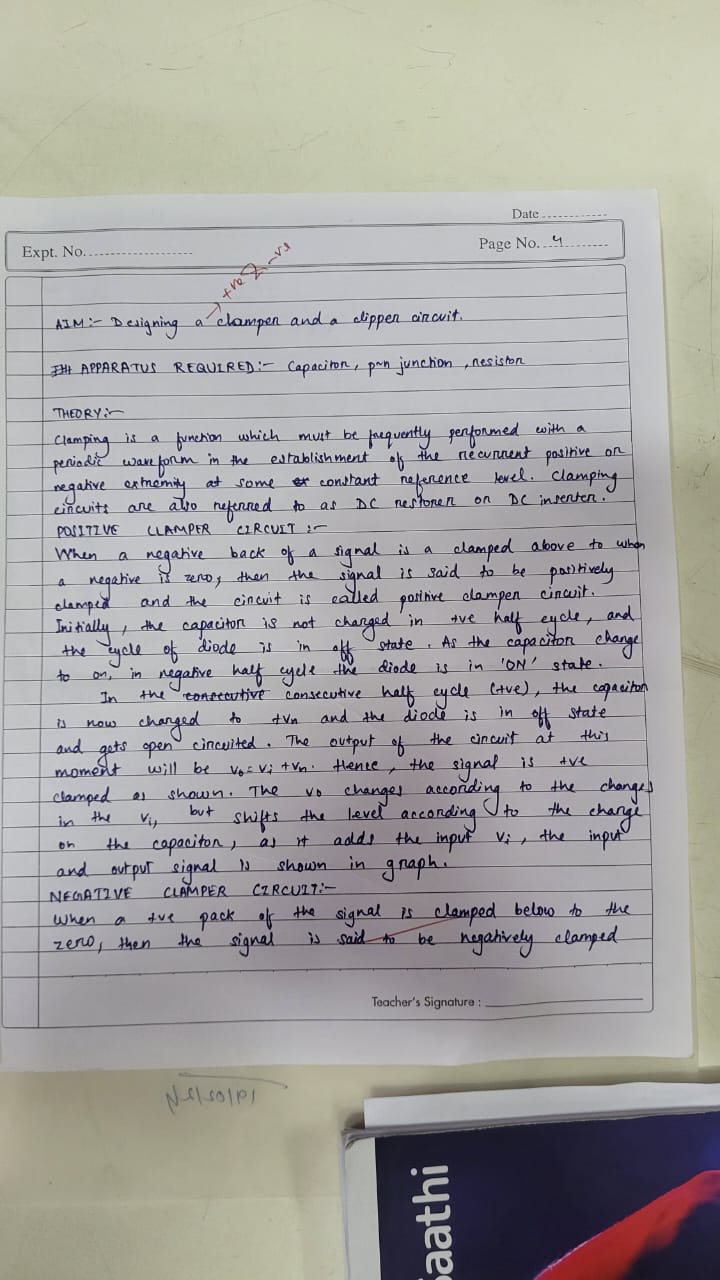 Date ............
Expt. No. ....................
Page No. ..4........
+ve & -ve
AIM:- Designing a clamper and a clipper circuit.
APPARATUS REQUIRED:- Capacitor, p-n junction, resistor
THEORY:-
Clamping is a function which must be frequently performed with a
periodic waveform in the establishment of the recurrent positive or
negative extremity at some constant reference level. Clamping
circuits are also referred to as DC restorer or DC inserter.
POSITIVE CLAMPER CIRCUIT :-
When a negative back of a signal is a clamped above to when
a negative is zero, then the signal is said to be positively
clamped and the circuit is called positive clamper circuit.
Initially, the capacitor is not charged in +ve half cycle, and
the cycle of diode is in off state. As the capacitor change
to on, in negative half cycle the diode is in 'ON' state.
In the consecutive consecutive half cycle (+ve), the capacitor
is now changed to +Vn and the diode is in off state
and gets open circuited. The output of the circuit at this
moment will be Vo = Vi + Vn. Hence, the signal is +ve
clamped as shown. The Vo changes according to the changes
in the Vi, but shifts the level according to the change
on the capacitor, as it adds the input Vi, the input
and output signal is shown in graph.
NEGATIVE CLAMPER CIRCUIT:-
When a +ve pack of the signal is clamped below to the
zero, then the signal is said to be negatively clamped
Teacher's Signature :
19/02/24
Saathi